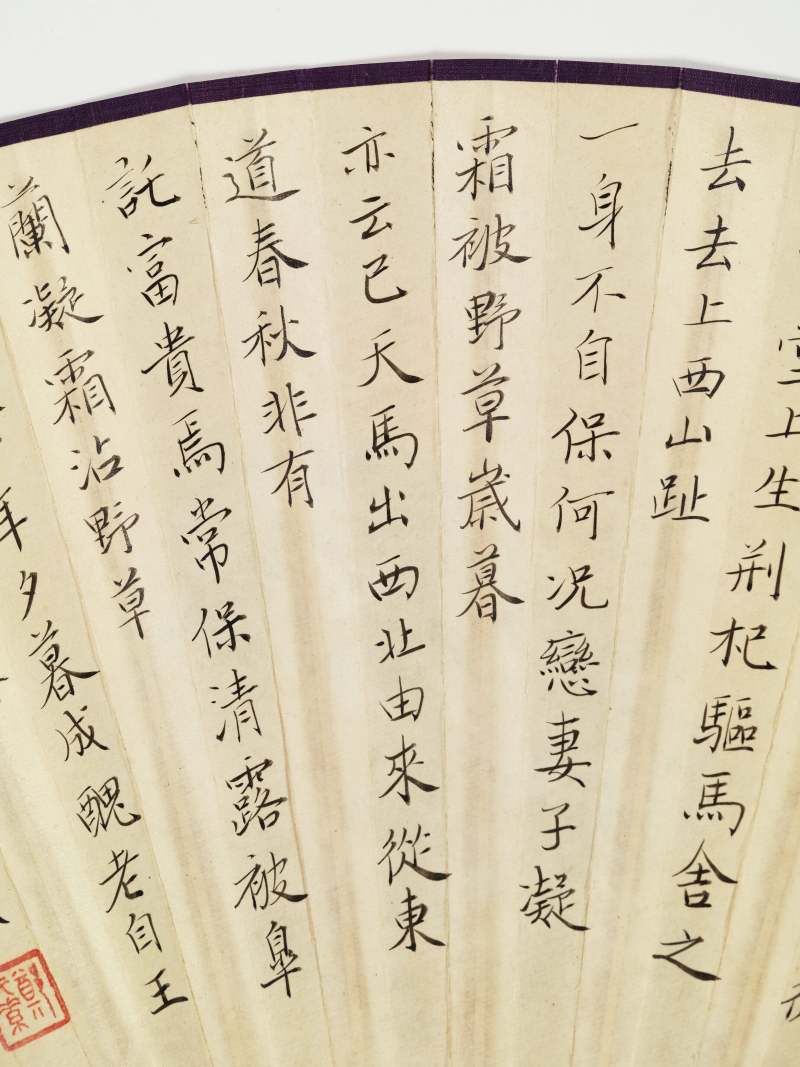 堂上生荆杞驅馬舍之
去去上西山趾
一身不自保何况戀妻子凝
霜被野草歲暮
亦云已天馬出西北由來從東
道春秋非有
託富貴焉常保清露被皐
蘭凝霜沾野草
年夕暮成醜老自王